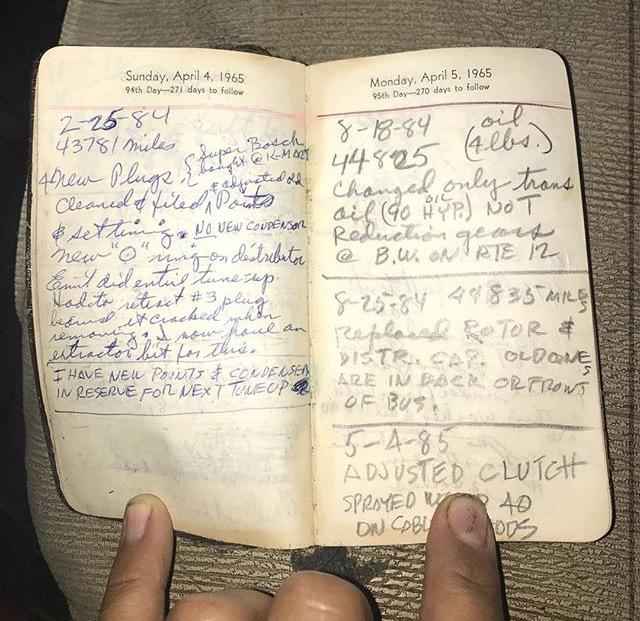 Sunday, April 4, 1965
94th Day—271 days to follow
2-25-84
43781 miles
4 new Plugs, 2 { Super Bosch
bought @ K-MART
& adjusted old
Cleaned & filed ^ Points
& set timing. NO NEW CONDENSOR
New "O" ring on distributor
did entire tune-up
Had to #3 plug
it cracked when
removing. I now have an
extractor bit for this.
I HAVE NEW POINTS & CONDENSER
IN RESERVE FOR NEXT TUNEUP
Monday, April 5, 1965
95th Day—270 days to follow
8-18-84 oil
44825 (4 lbs.)
Changed only trans
oil (90 OIL HYP.) NOT
Reduction gears
@ B.W. ON RTE 12
8-25-84 44835 MILES
Replaced ROTOR &
DISTR. CAP. OLD ONES
ARE IN BACK OR FRONT
OF BUS.
5-4-85
ADJUSTED CLUTCH
SPRAYED 40
ON